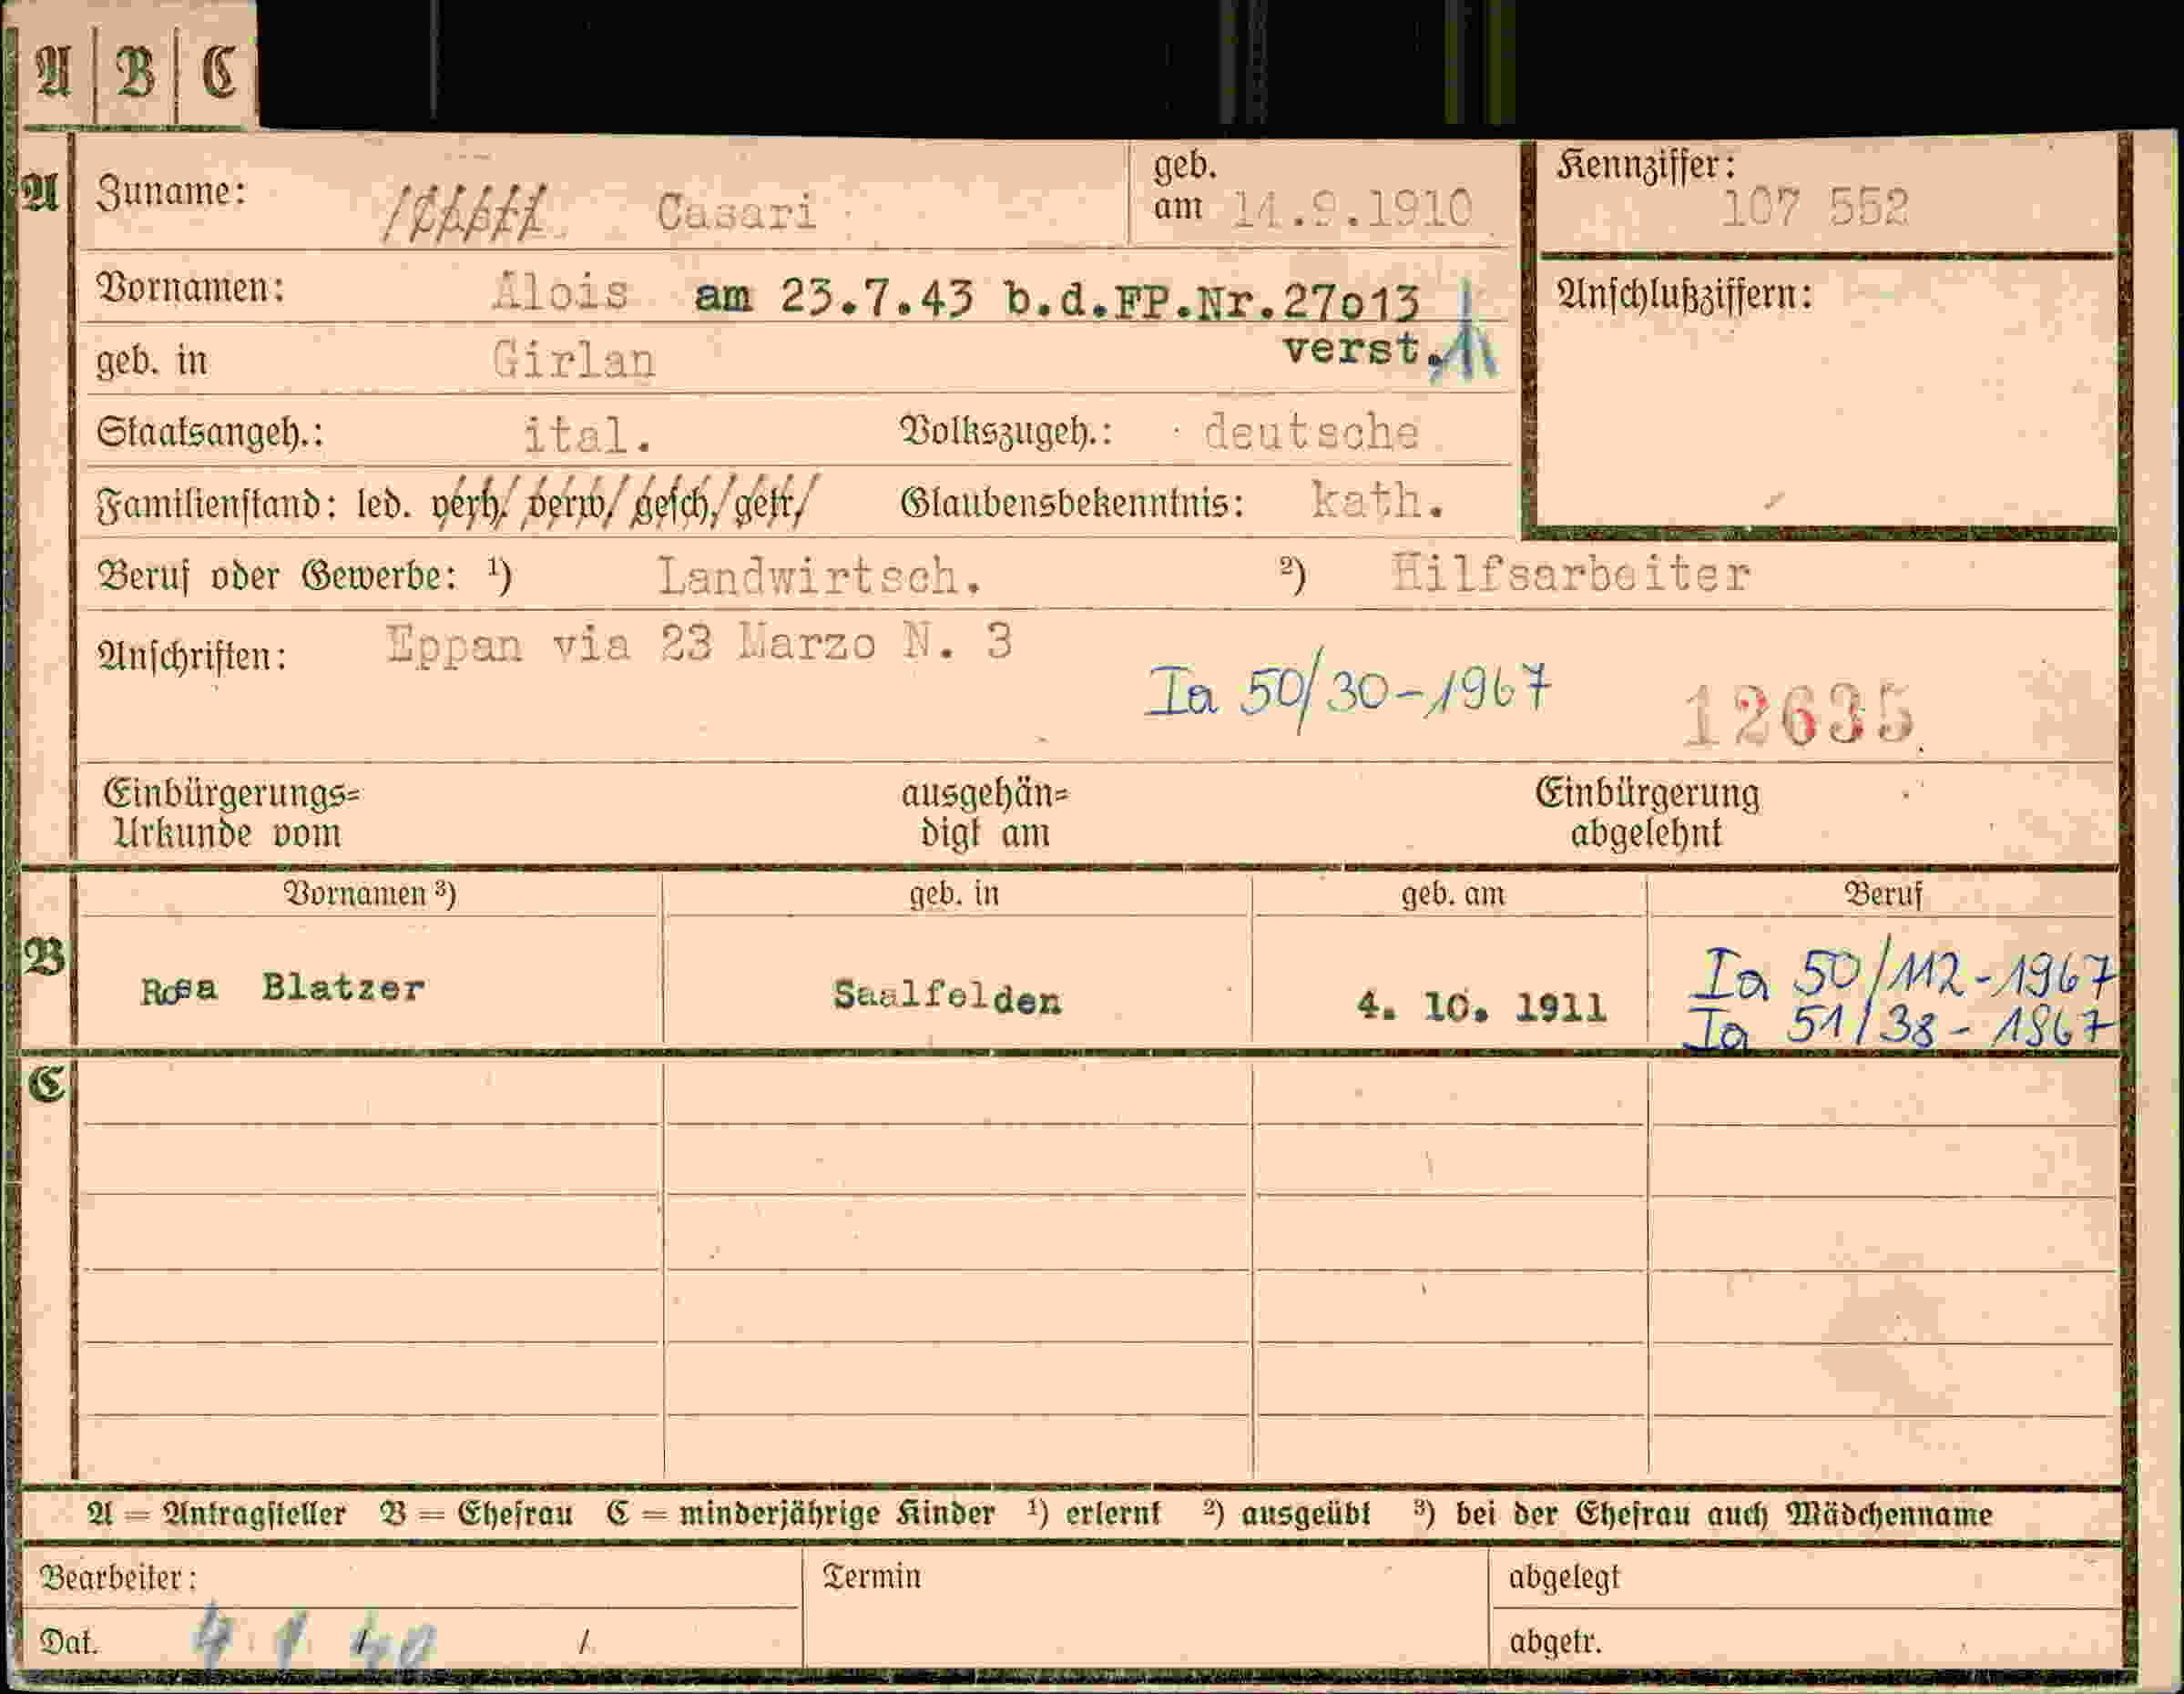 A B C
A Zuname: Casari geb. am 14.9.1910 Kennziffer: 107 552
Vornamen: Alois am 23.7.43 b.d.FP.Nr.27013 verst. Anschlußziffern:
geb. in Girlan
Staatsangeh.: ital. Volkszugeh.: deutsche
Familienstand: led. verh. verw. gesch. getr. Glaubensbekenntnis: kath.
Beruf oder Gewerbe: ¹) Landwirtsch. ²) Hilfsarbeiter
Anschriften: Eppan via 23 Marzo N. 3
Ia 50/30-1967 12635
Einbürgerungs= ausgehän= Einbürgerung
Urkunde vom digt am abgelehnt
B Vornamen ³) geb. in geb. am Beruf
Rosa Blatzer Saalfelden 4. 10. 1911 Ia 50/112-1967
Ia 51/38-1967
C
A = Antragsteller B = Ehefrau C = minderjährige Kinder ¹) erlernt ²) ausgeübt ³) bei der Ehefrau auch Mädchenname
Bearbeiter: Termin abgelegt
Dat. / / abgetr.